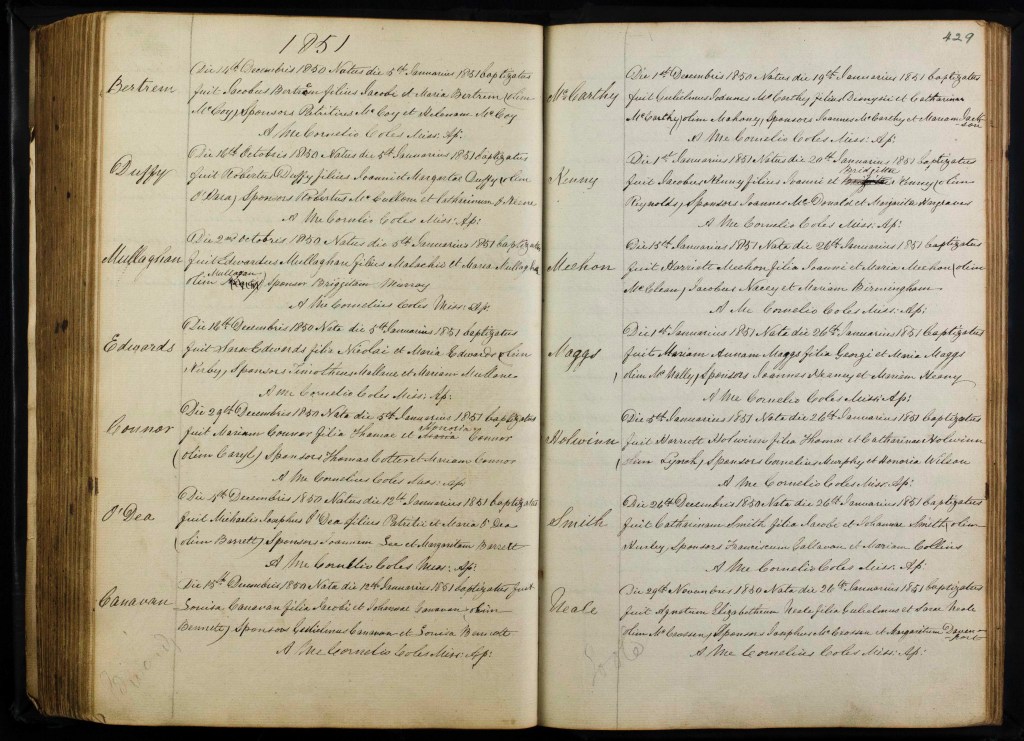 1851
Bertrem
Die 14th Decembris 1850 Natus die 5th Januarius 1851 baptizatus
fuit Jacobus Bertrem filius Jacobe et Maria Bertrem (olim
McCoy) Sponsors Patiticus McCoy et Helenam McCoy
A Me Cornelio Coles Miss: Ap:
Duffy
Die 16th Octobris 1850 Natus die 5th Januarius 1851 baptizatus
fuit Robertus Duffy filius Joanni et Margaretae Duffy (olim
O'Dara) Sponsors Robertus McCullom et Catherinum
A Me Cornelio Coles Miss: Ap:
Mullaghan
Die 2nd octobres 1850 Natus die 5th Januarius 1851 baptizatus
fuit Edwardus Mullaghan filius Malachie et Maria Mullagha
olim Mullagan Sponsor Briggidam Murray
A Me Cornelius Coles Miss: Ap:
Edwards
Die 16th Decembris 1850 Nata die 5th Januarius 1851 baptizatus
fuit Sara Edwards filia Nicolai et Maria Edwards (olim
Kirby) Sponsors Timotheus Mullane et Mariam Mullane
A Me Cornelio Coles Miss: Ap:
Connor
Die 29th Decembris 1850 Nata die 5th Januarius 1851 baptizatus
fuit Mariam Connor filia Thomae et Honoria Connor
(olim Caryl) Sponsors Thomas Cotter et Mariam Connor
A Me Cornelius Coles Miss: Ap
O'Dea
Die 1st Decembres 1850 Natus die 12th Januarius 1851 baptizatus
fuit Michaelis Josephus O'Dea filius Patitii et Maria O'Dea
(olim Barrett) Sponsors Joannem Lea et Margaretam Barrett
A Me Cornelio Coles Miss: Ap:
Canavan
Die 15th Decembris 1850 Nata die 12th Januarius 1851 baptizatus fuit
Louisa Canavan filia Jacobi et Johannae Canavan (olim
Bennett) Sponsors Gulielmus Cannvan et Louisa Bennett
A Me Cornelio Coles Miss: Ap:
429
McCarthy
Die 1st Decembris 1850 Natus die 19th Januarius 1851 baptizatus
fuit Gulielmus Joannes McCarthy filius Dionysii et Catharinae
McCarthy (olim Mahony) Sponsors Joannes McCarthy et Mariam Jackson
A Me Cornelio Coles Miss: Ap:
Kenny
Die 1st Januarius 1851 Natus die 20th Januarius 1851 baptizatus
fuit Jacobus Kenny filius Joanni et Bridgitta Kenny (olim
Reynolds) Sponsors Joannes McDonald et Margarita Hargraves
A Me Cornelio Coles Miss: Ap:
Meehon
Die 15th Januarius 1851 Nata die 26th Januarius 1851 baptizatus
fuit Harriott Meehon filia Joanni et Maria Meehon (olim
McClean) Jacobus Necey et Mariam Birmingham
A Me Cornelio Coles Miss: Ap:
Maggs
Die 1st Januarius 1851 Nata die 26th Januarius 1851 baptizatus
fuit Mariam Annam Maggs filia Georgi et Maria Maggs
(olim McNally) Sponsors Joannes Heany et Mariam Heany
A Me Cornelio Coles Miss: Ap:
Holwinn
Die 5th Januarius 1851 Nata die 26th Januarius 1851 baptizatus
fuit Harriott Holwinn filia Thomae et Catharinae Holwinn
(olim Lynch) Sponsors Cornelius Murphy et Honoria Wilson
A Me Cornelio Coles Miss: Ap:
Smith
Die 26th Decembris 1850 Nata die 26th Januarius 1851 baptizatus
fuit Catharinam Smith filia Jacobe et Johannae Smith (olim
Hurley) Sponsors Franciscum Callavan et Mariam Collins
A Me Cornelio Coles Miss: Ap:
Neale
Die 29th Novembres 1850 Nata die 26th Januarius 1851 baptizatus
fuit Agnatum Elizabetheum Neale filia Gulielmus et Sara Neale
(olim McCrossen) Sponsors Josephus McCrossan et Margaritum Davenport
A Me Cornelius Coles Miss: Ap: